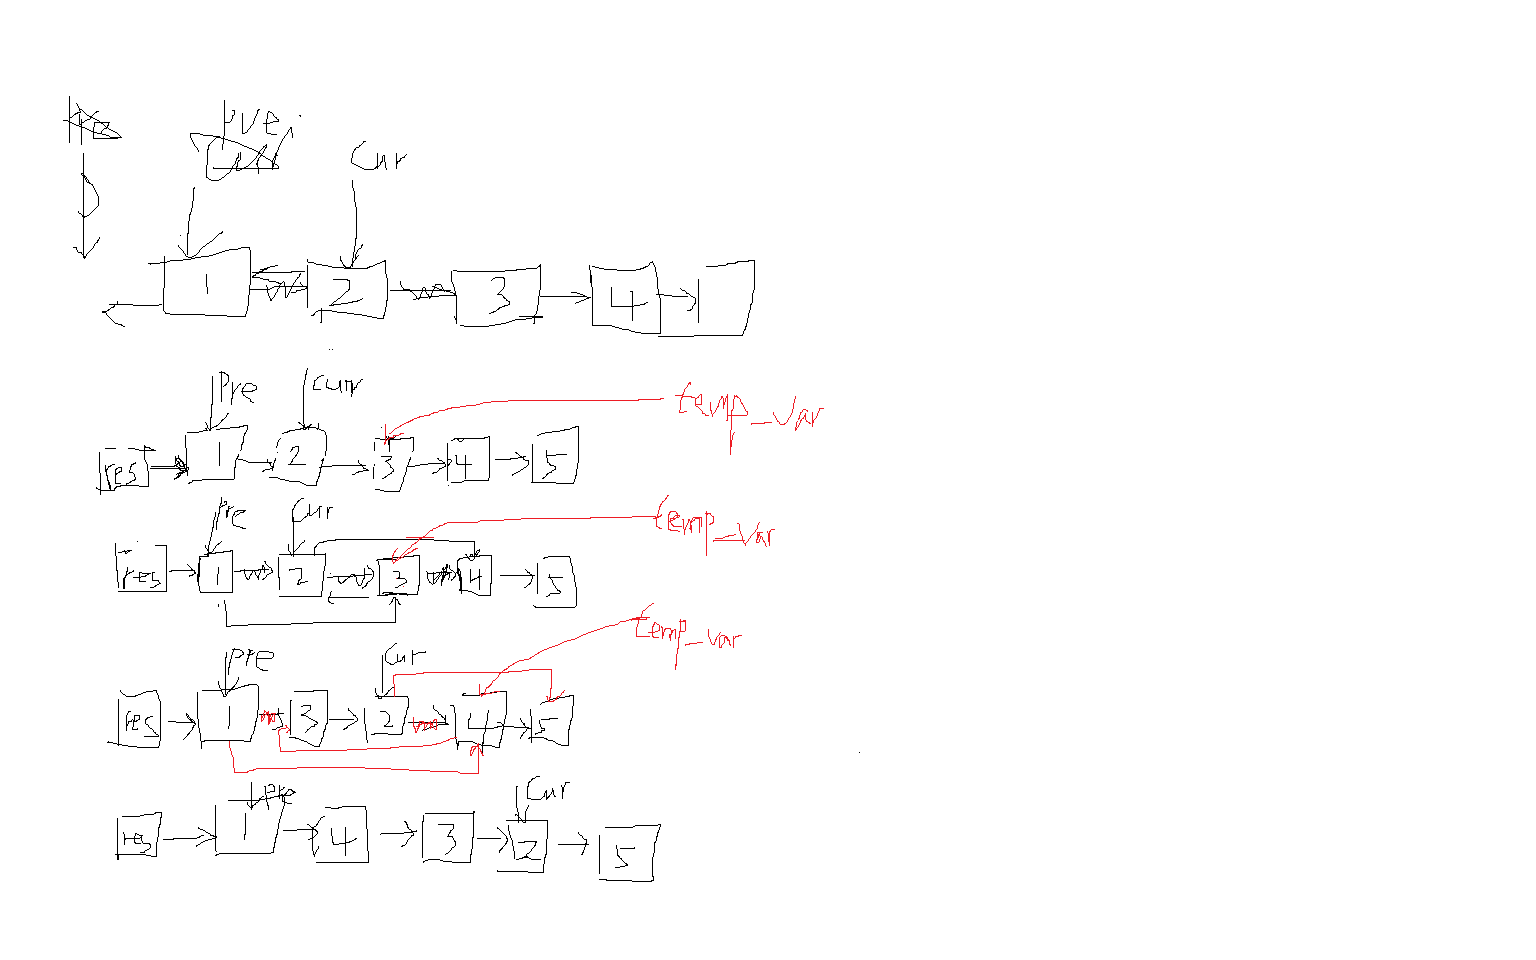 pve
Cur
1 2 3 4
Pre curr temp_var
res 1 2 3 4 5
Pre Cur temp_var
res 1 2 3 4 5
temp_var
pre Cur
res 1 3 2 4 5
pre Cur
res 1 4 3 2 5